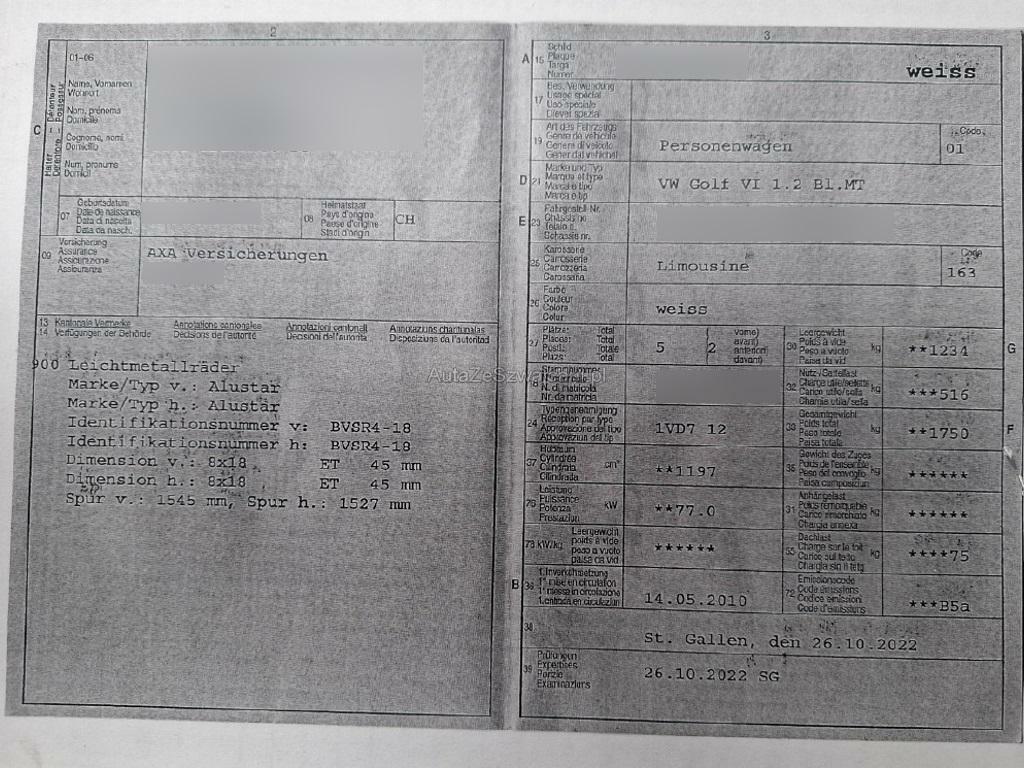 2
01-06
Name, Vornamen
Wohnort
Nom, prénoms
Domicile
Cognome, nomi
Domicilio
Num, prenums
Domicil
C
Halter
Détenteur
Detentore
Possessur
07
Geburtsdatum
Date de naissance
Data di nascita
Data da nasch.
08
Heimatstaat
Pays d'origine
Paese d'origine
Stadi d'origin
CH
09
Versicherung
Assurance
Assicurazione
Assicuranza
AXA Versicherungen
13 Kantonale Vermerke
14 Verfügungen der Behörde
Annotations cantonales
Décisions de l'autorité
Annotazioni cantonali
Decisioni dell'autorità
Annotaziuns chantunalas
Disposiziuns da l'autoritad
900 Leichtmetallräder
Marke/Typ v.: Alustar
Marke/Typ h.: Alustar
Identifikationsnummer v: BVSR4-18
Identifikationsnummer h: BVSR4-18
Dimension v.: 8x18 ET 45 mm
Dimension h.: 8x18 ET 45 mm
Spur v.: 1545 mm, Spur h.: 1527 mm
3
A 15
Schild
Plaque
Targa
Numer
weiss
17
Bes. Verwendung
Usage spécial
Uso speciale
Diever spezial
19
Art des Fahrzeugs
Genre de véhicule
Genere di veicolo
Gener dal vehichel
Personenwagen
Code
01
D 21
Marke und Typ
Marque et type
Marca e tipo
Marca e tip
VW Golf VI 1.2 Bl.MT
E 23
Fahrgestell Nr.
Châssis no
Telaio n.
Schassis nr.
25
Karosserie
Carrosserie
Carrozzeria
Carossaria
Limousine
Code
163
26
Farbe
Couleur
Colore
Colur
weiss
27
Plätze: Total
Places: Total
Posti: Totale
Plazs: Total
5
2
vorne)
avant)
anteriori)
davant)
30
Leergewicht
Poids à vide
Peso a vuoto
Paisa da vid
kg
**1234
G
18
Stammnummer
N. di matricola
Nr. da matricla
32
Nutz-/Sattellast
Charge utile/sellette
Carico utile/sella
Chargia utila/sella
kg
***516
24
Typengenehmigung
Réception par type
Approvazione del tipo
Approvaziun dal tip
1VD7 12
33
Gesamtgewicht
Poids total
Peso totale
Paisa totala
kg
**1750
F
37
Hubraum
Cylindrée
Cilindrata
Cilindrada
cm³
**1197
35
Gewicht des Zuges
Poids de l'ensemble
Peso del convoglio
Paisa cumposiziun
kg
******
76
Leistung
Puissance
Potenza
Prestaziun
kW
**77.0
31
Anhängelast
Poids remorquable
Carico rimorchiato
Chargia annexa
kg
******
78 kW/kg
Leergewicht
poids à vide
peso a vuoto
paisa da vid
******
55
Dachlast
Charge sur le toit
Carico sul tetto
Chargia sin il tetg
kg
****75
B 36
1. Inverkehrsetzung
1re mise en circulation
1a messa in circolazione
1. entrada en circulaziun
14.05.2010
72
Emissionscode
Code émissions
Codice emissioni
Code d'emissiuns
***B5a
38
St. Gallen, den 26.10.2022
39
Prüfungen
Expertises
Perizie
Examinaziuns
26.10.2022 SG